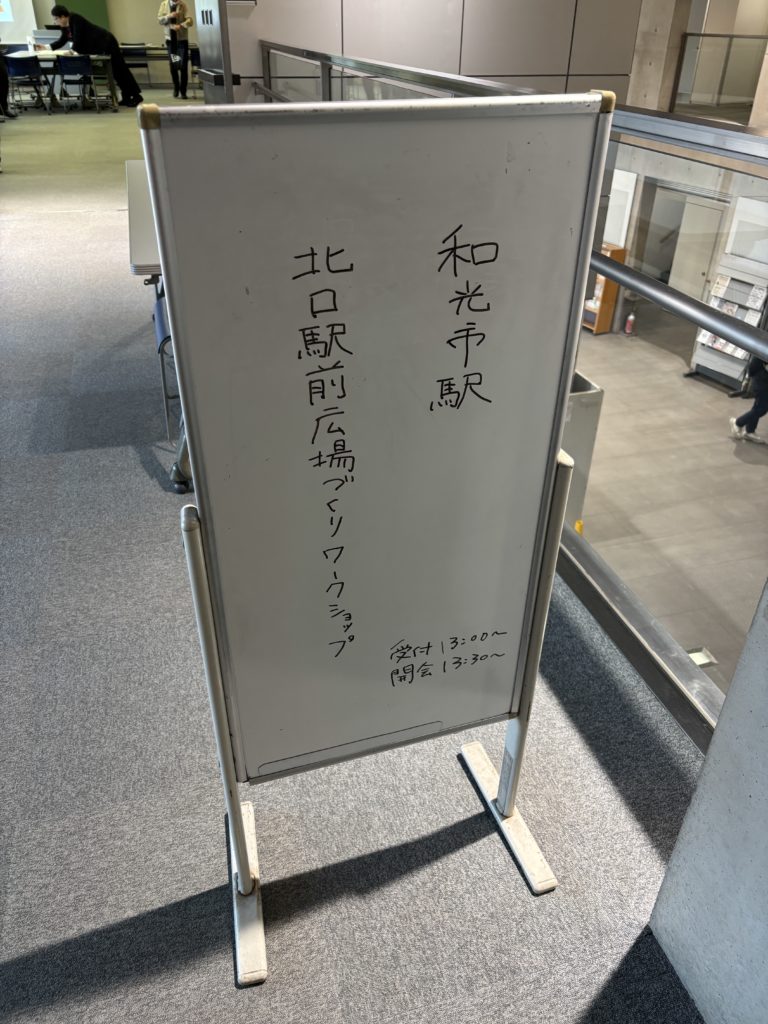 和光市駅
北口駅前広場づくりワークショップ
受付13:00～
開会13:30～